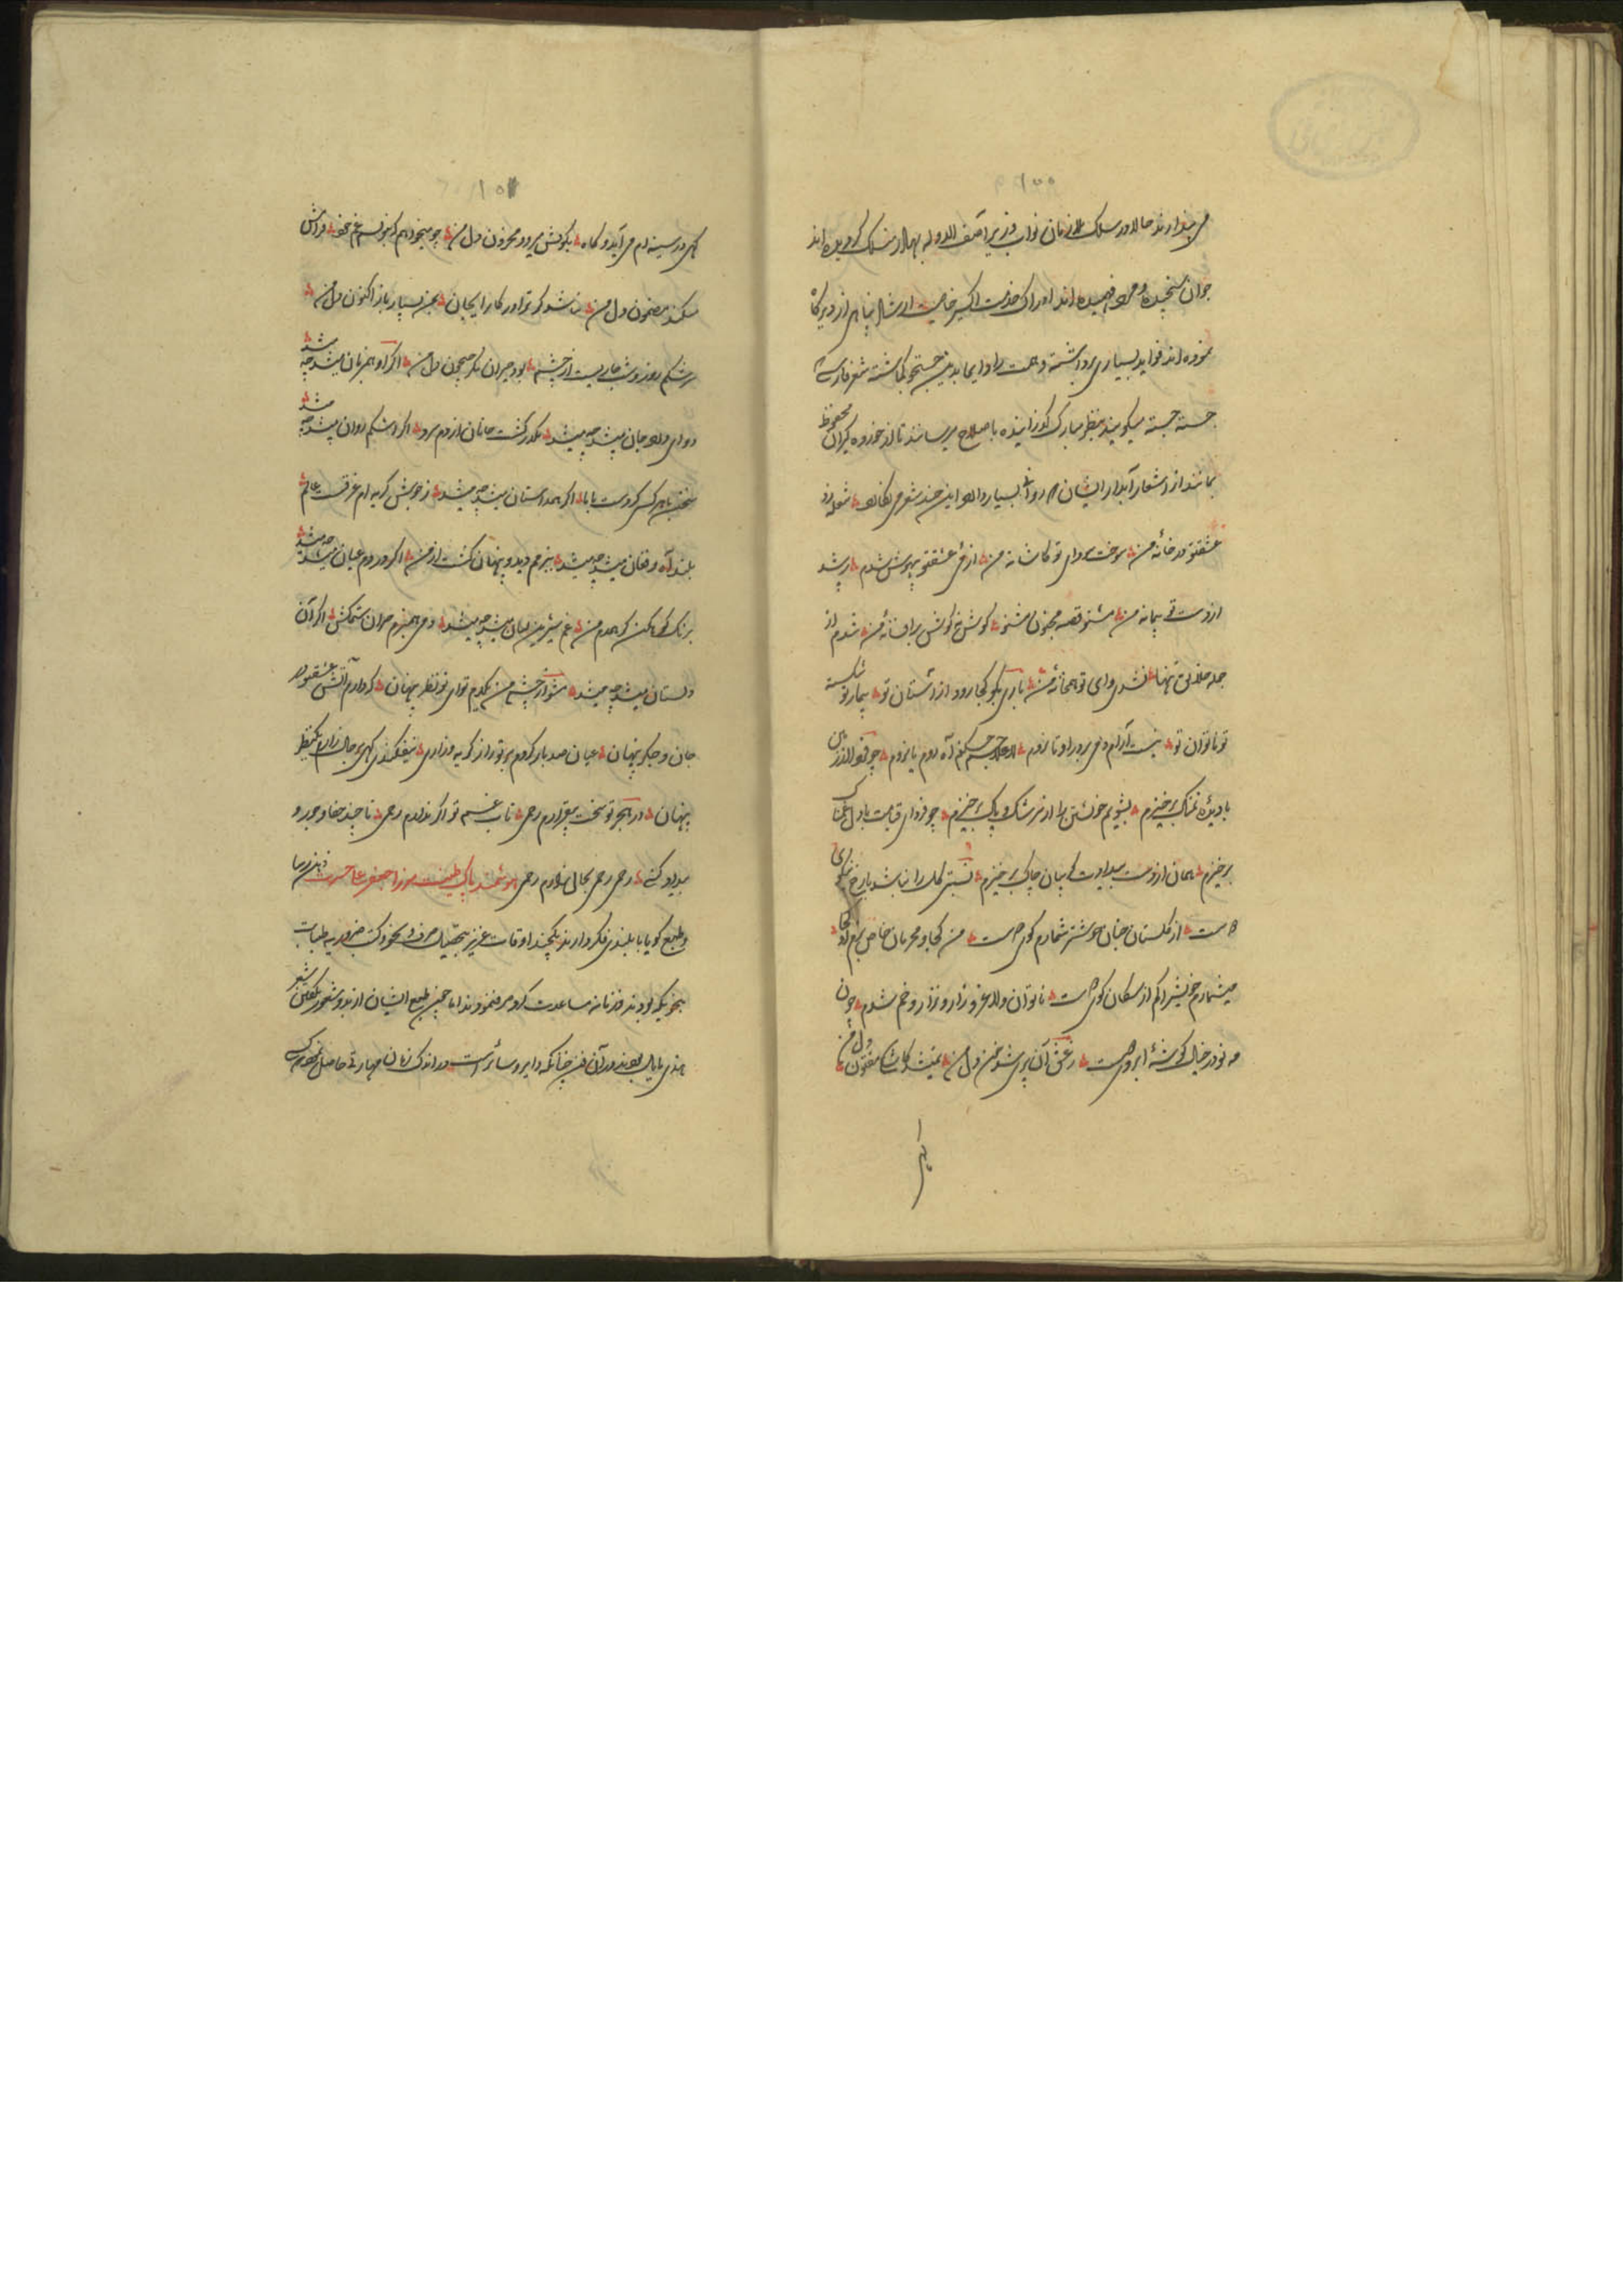 ۱۰۰
می پندارند حالا در سلک ملازمان نواب وزیر آصف الدوله بهادر منسلک گردیده اند
جوان سنجیده و مرد فهمیده اند ادراک خدمت اکسیر خاصیت ارشاد پناهی از دیرگاه
نموده اند فواید بسیاری برداشته و همت را دایما بدین جستجو گماشته شعر فارسی
جسته جسته میگویند بنظر مبارک گذرانیده باصلاح میرسانند تا از خورده گیران محفوظ
بمانند از اشعار آبدار ایشان که رواج بسیار دارد این چند شعر می نگارد شعله زد
عشق تو در خانه من سوخت سودای تو کاشانه من از می عشق تو بیهوش شدم رشد
از دست تو پیمانه من مشنو قصه مجنون مشنو گوش خ گوش بر افسانه من شدم از
جمله خلایق تنها نشد وای تو همخانه من یاری بگو کجا رود از آستان تو بیمار تو شکسته
تو ناتوان تو نیست آرام دمی بی در او تا بروم چکنم آه روم یا نروم چو
با دیدۀ نمناک برخیزم بشویم خویشتن را از سرشک و پاک برخیزم چو فردای قیامت با دل
برخیزم همان از دست بیدادت گریبان چاک برخیزم نسبتی گل را نباشد با رخ نیکوی
دوست از گلستان جنان خوشتر شمارم کوی دوست من کجا و محرمان خاص بزم او کجا
میشمارم خویش را کم از سگان کوی دوست ناتوان و لاغر و زار و نزار و خم شدم چون
مه نو در خیال گوشۀ ابروی دوست ز عشق آن پری شد خون دل من نمیشد کاش مفتون دل من
گهی
۱۰۱
گهی در سینه ام می آید و گاه بکویش میرود محزون دل من چو میخواهم که بنویسم غم خود فراموش
میکند مضمون دل من نباشد گر ترا در کار ایجان بمن بسپار باز اکنون دل من
سرشکم روز و شب جاریست از چشم بود حیران مگر جیحون دل من اگر او مهربان میشد چه میشد
دوای درد جان میشد چه میشد مکدر گشت جانان از دم سرد اگر اشکم روان میشد چه میشد
سخن با هر کس کردست بابا اگر همداستان میشد چه میشد ز جوش گریه ام غرقست عالم
بلند آه و فغان میشد چه میشد ببزم دید و پنهان گشت از من اگر در دم عیان میشد چه میشد
برنگ کوهکن گر همدم من غم شیرین لبان میشد چه میشد دمی همبزم من آن ستمکش اگر آن
دلستان میشد چه میشد مشو از چشم من یکدم تو ای نور نظر پنهان که دارم آتش عشق تو در
جان و جگر پنهان عیان صد بار کردم بر تو راز گریه و زاری نیفگندی گهی بر حال زارم یک نظر
پنهان در هجر تو سخت بیقرارم رحمی تاب غم تو اگر ندارم رحمی تا چند جفا و جور و
بیداد کنی رحمی رحمی بحال زارم رحمی هوشمند پاک طینت میرزا جعفر علی حسرت ذهن رسا
و طبع گویا با بلندی فکر دارند یکچند اوقات عزیز بتحصیل صرف و نحو و کتب ضروریه طبابت
بخوبیکه بودند زمانه مساعدت کرد میفرمودند اما چون طبع ایشان از بدو شعور بگفتن شعر
هندی مایل بود در آن فن چنانکه دایر و سایرست در اندک زمان مهارتی حاصل نموده که